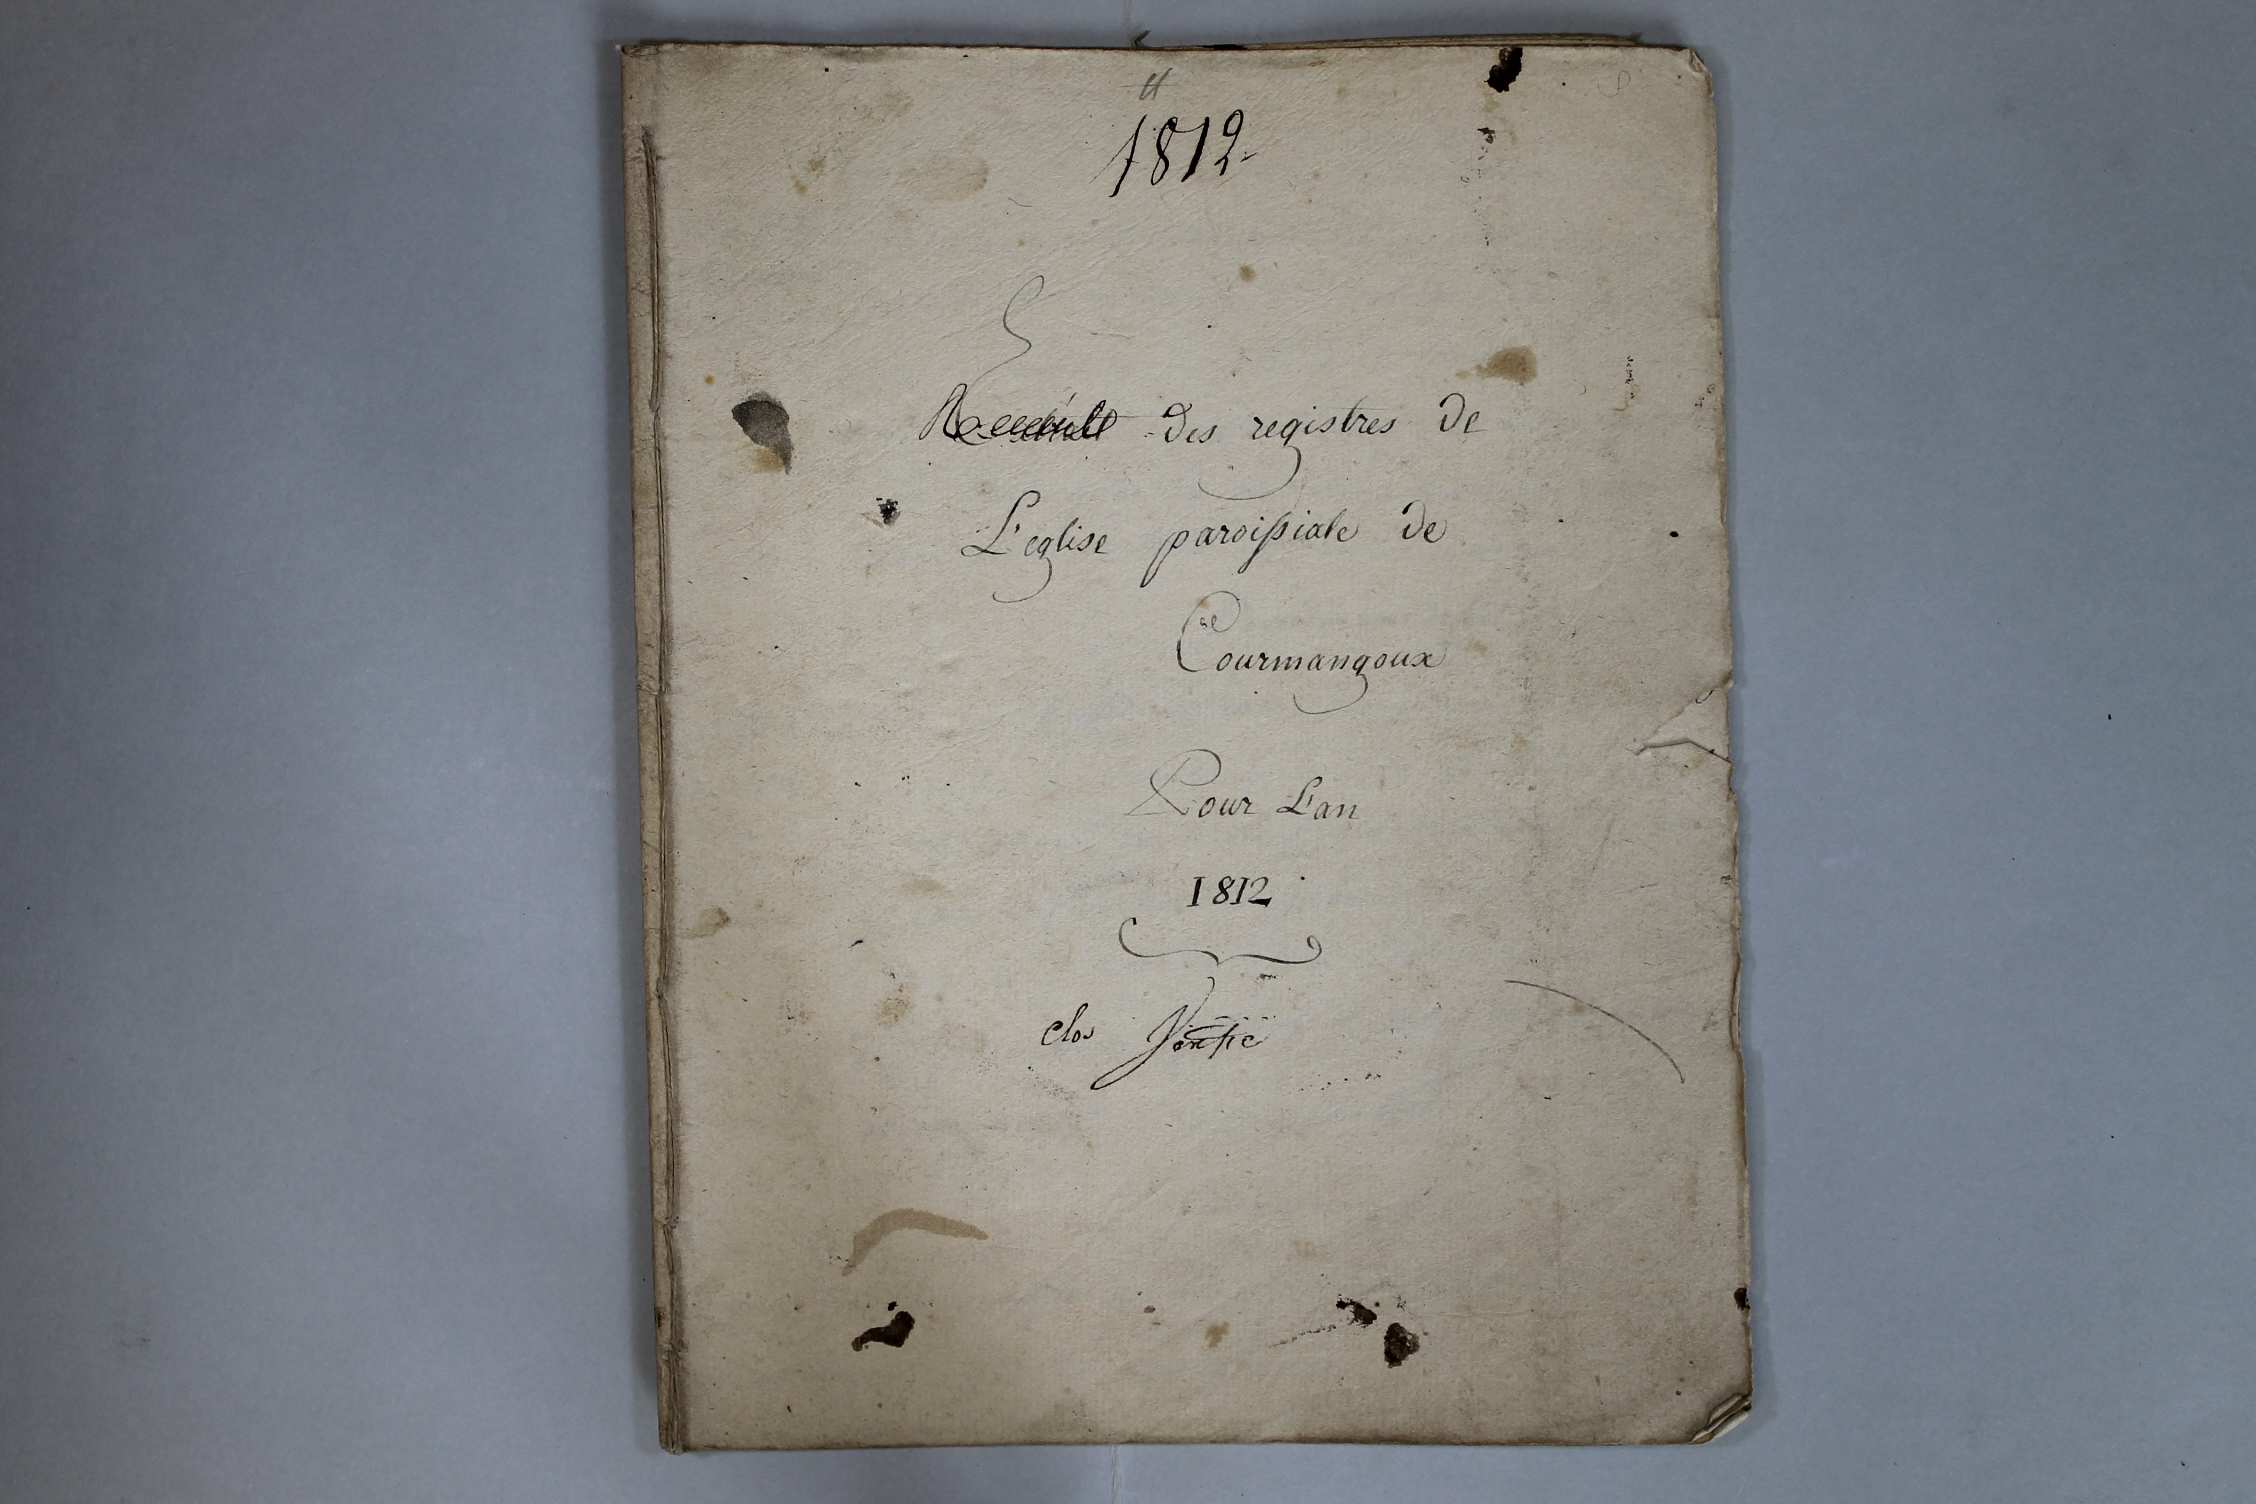 1812
des registres de
L'eglise paroissiale de
Courmangoux
Pour L'an
1812
clos